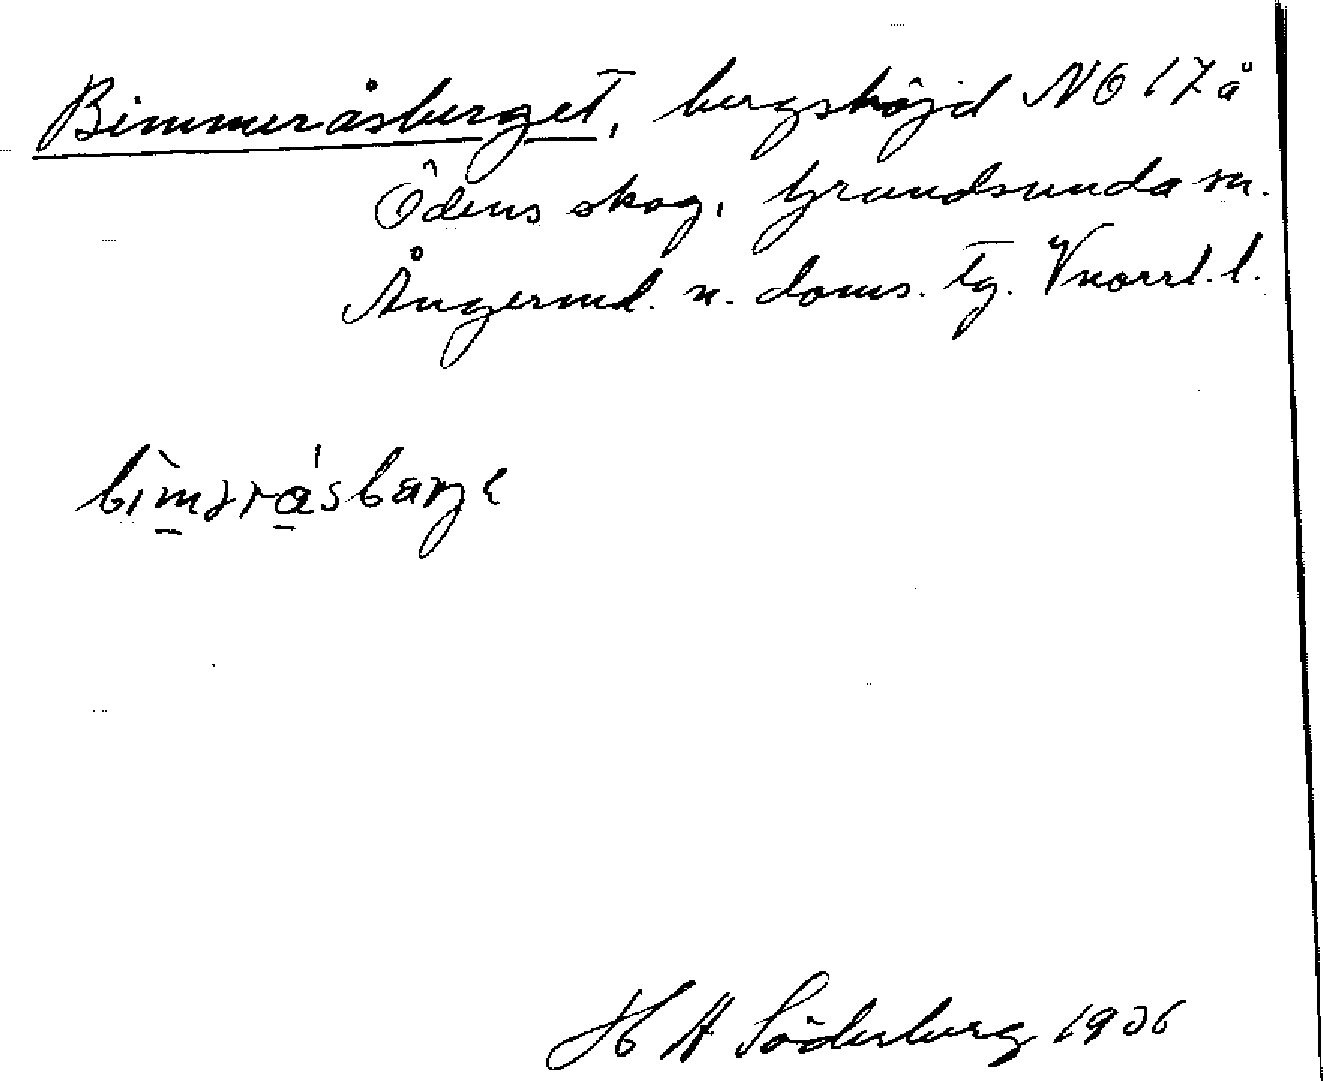 Bimmeråsberget, bergshöjd NO 17 å
Ödens skog, Grundsunda sn.
Ångerml. n. doms. tg. Vnorrl. l.
H A Söderberg 1936